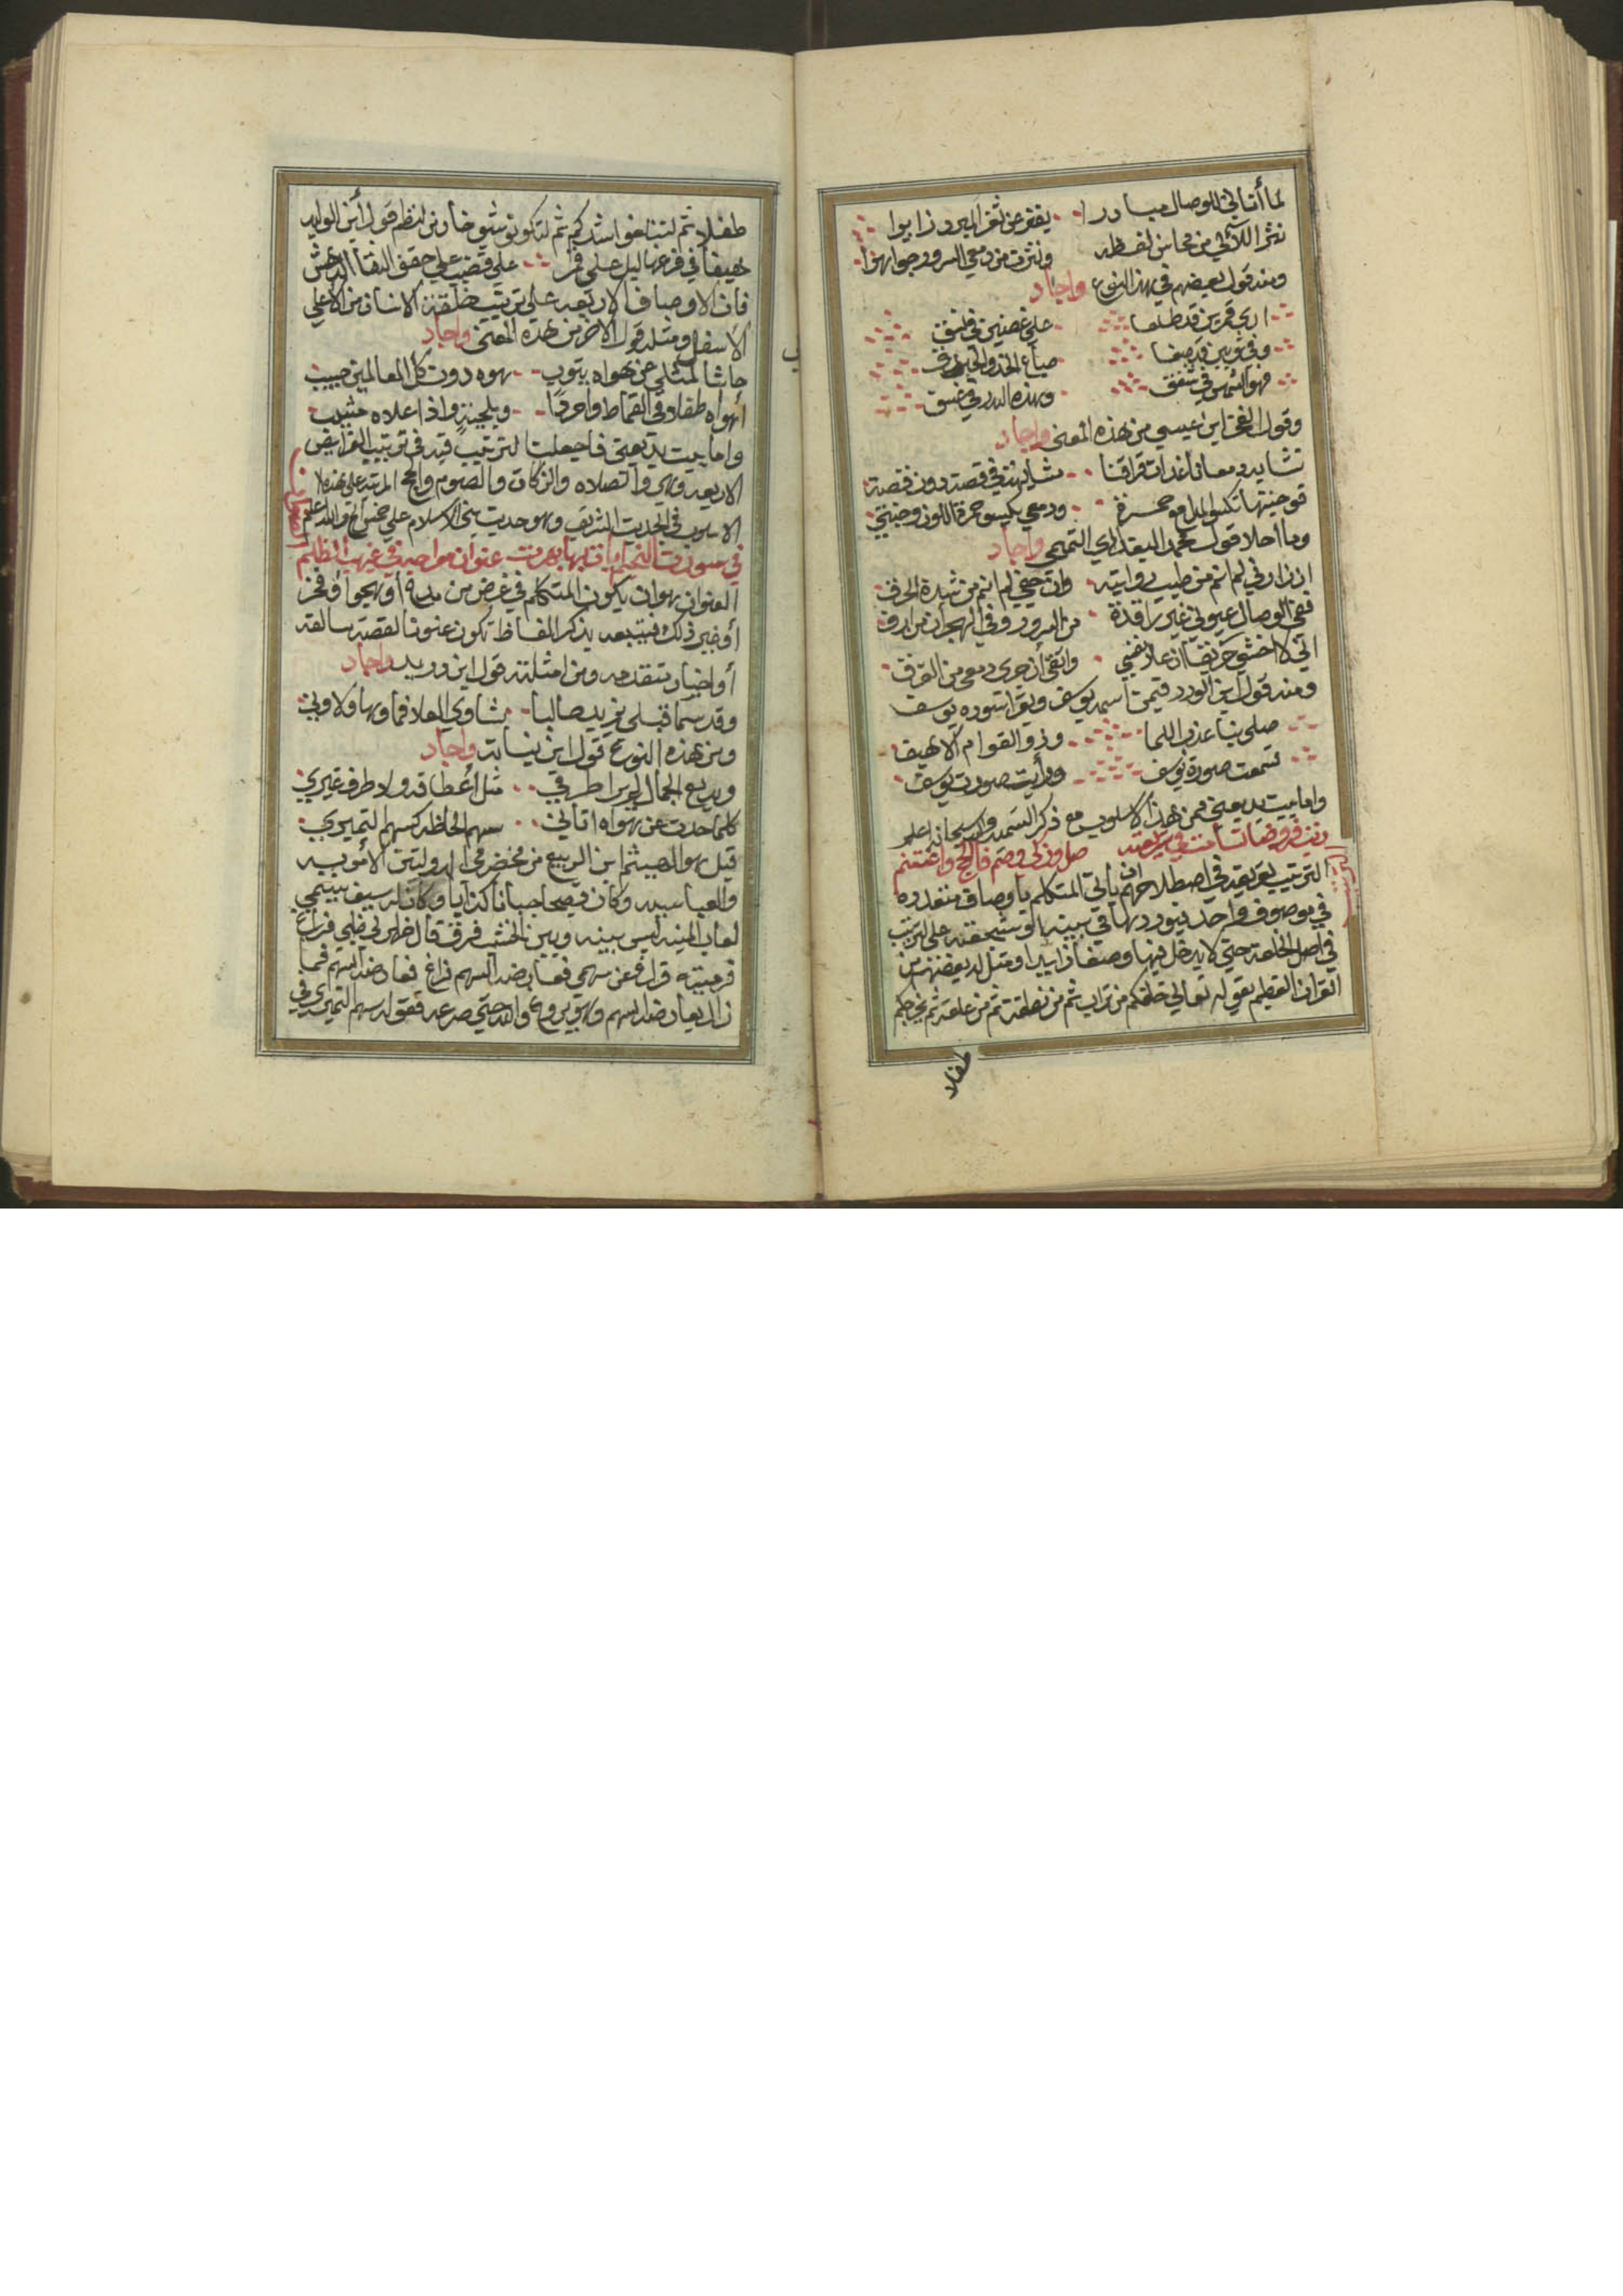 لما أتاني للوصال مبادرا يفتر عن ثغر السرور زاهوا
نثر اللآلي من محاسن لفظه ونثرت من دمعي السرور جواهرا
ومنه قول بعضهم في هذا النوع واجاد
اري قمرين قد طلعا علي غصنين في نسق
وفي ثوبين قد صبغا صباغ الخد والحدق
فهو الشمس في شفق وهذه البدر في غسق
وقول الفخر ابن عيسي من هذه المعنى واجاد
تشابه دمعانا غداة فراقنا مشابهة في قصة دون قصة
فوجنتها تكسو المدامع حمرة ودمعي يكسو حمرة اللون وجنتي
وما احلا قول محمد البغدادي التميمي واجاد
ان زارني لم انم من طيب رؤيته وان جفي لم انم من شدة الحرق
ففي الوصال عيوني غير راقدة من السرور وفي الهجران من ارق
اني لاخشي حريقا ان علا نفسي واتقي أن جرى دمعي من الغرق
ومنه قول ابن الورد فيمن اسمه يوسف ويقرا سوره يوسف
صلي بنا عذب اللما وذو القوام الاهيف
فسمعت صورة يوسف ورأيت صورت يوسف
واما بيت بديعيتي فمن هذا الاسلوب مع ذكر التسمية والله سبحانه اعلم
صل وزكي وصم فالحج واغتنم
الترتيب تعريفه في اصطلاحهم ان يأتي المتكلم باوصاف متعدده
في موصوف واحد فيوردها في بيته او سجعته على ترتيب
في اصل الخلقه حتي لا يدخل فيها وصفا زايدا ومثل له بعضهم من
القران العظيم بقوله تعالي خلقكم من تراب ثم من نطفة ثم من علقة ثم يخرجكم
طفلا
طفلا ثم لتبلغوا اشدكم ثم لتكونوا شيوخا ومن النظم قول أبن الوليد
هيفا في فرعها ليل علي قمر علي قضيب علي حقف النقا الدهش
فان الاوصاف الاربعه علي ترتيب خلقة الانسان من الأعلي
الأسفل ومثله قول الاخر من هذه المعنى واجاد
حاشا لمثلي عن هواه يتوب هوه دون كل العالمين حبيب
أهواه طفلا في القماط وامردا وبلحية واذا علاه مشيب
واما بيت بديعتي فاجعلت الترتيب فيه في ترتيب الفرايض
الاربعه وهي الصلاه والزكات والصوم والحج المرتبه علي هذه
الاسلوب في الحديث الشريف وهو حديث بني الاسلام علي خمس الخ والله اعلم
في سورت النجم ايات بها بهرت عنوان مواحيه في غيهب الظلم
العنوان هو ان يكون المتكلم في غرض من مدح أو هجوا أو فخر
أو غير ذلك فيتبعه بذكر الفاظ تكون عنونا لقصة سالفه
أو اخبار متقدمه ومن امثلته قول ابن دريد واجاد
وقد سما قبلي يزيد طالبا شاوي العلا فما وها ولا وني
ومن هذه النوع قول ابن نباته واجاد
وبديع الجمال لم ير طرفي مثل أعطافه ولا طرف غيري
كلما حدت عن هواه اتاني سهم الحاظه كسهم النميري
قيل هو الهيثم ابن الربيع من مخضرمي الدولتين الأمويه
والعباسيه وكان فصيحا جبانا كذابا وكان له سيف يسمي
لعاب المنيه ليس بينه وبين الخشب فرق قال ظهر لي ظبي فراغ
فرميته فراغ عن سهمي فعارضه السهم فراغ فعارضه السهم فما
زال يعارضه السهم وهو يروغ والله حتي صرعه فقوله سهم النميري في